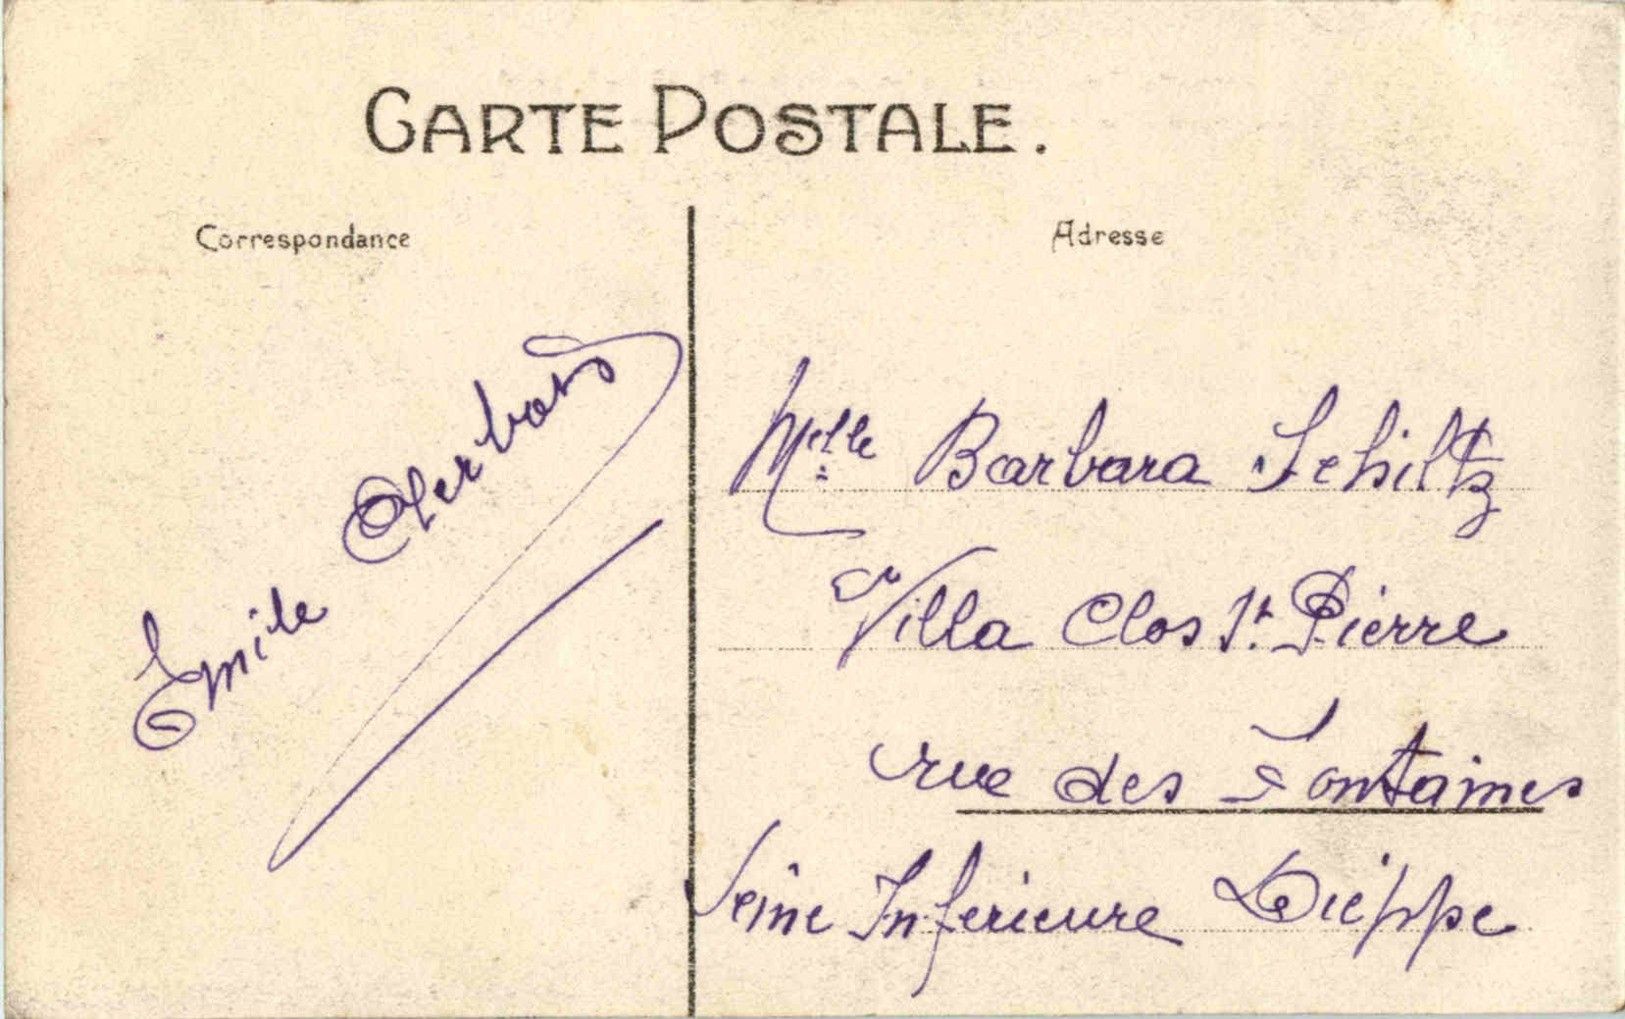 CARTE POSTALE.
Correspondance
Adresse
Emile
Melle Barbara Schiltz
Villa Clos St. Pierre
rue des Fontaines
Seine Inferieure Dieppe